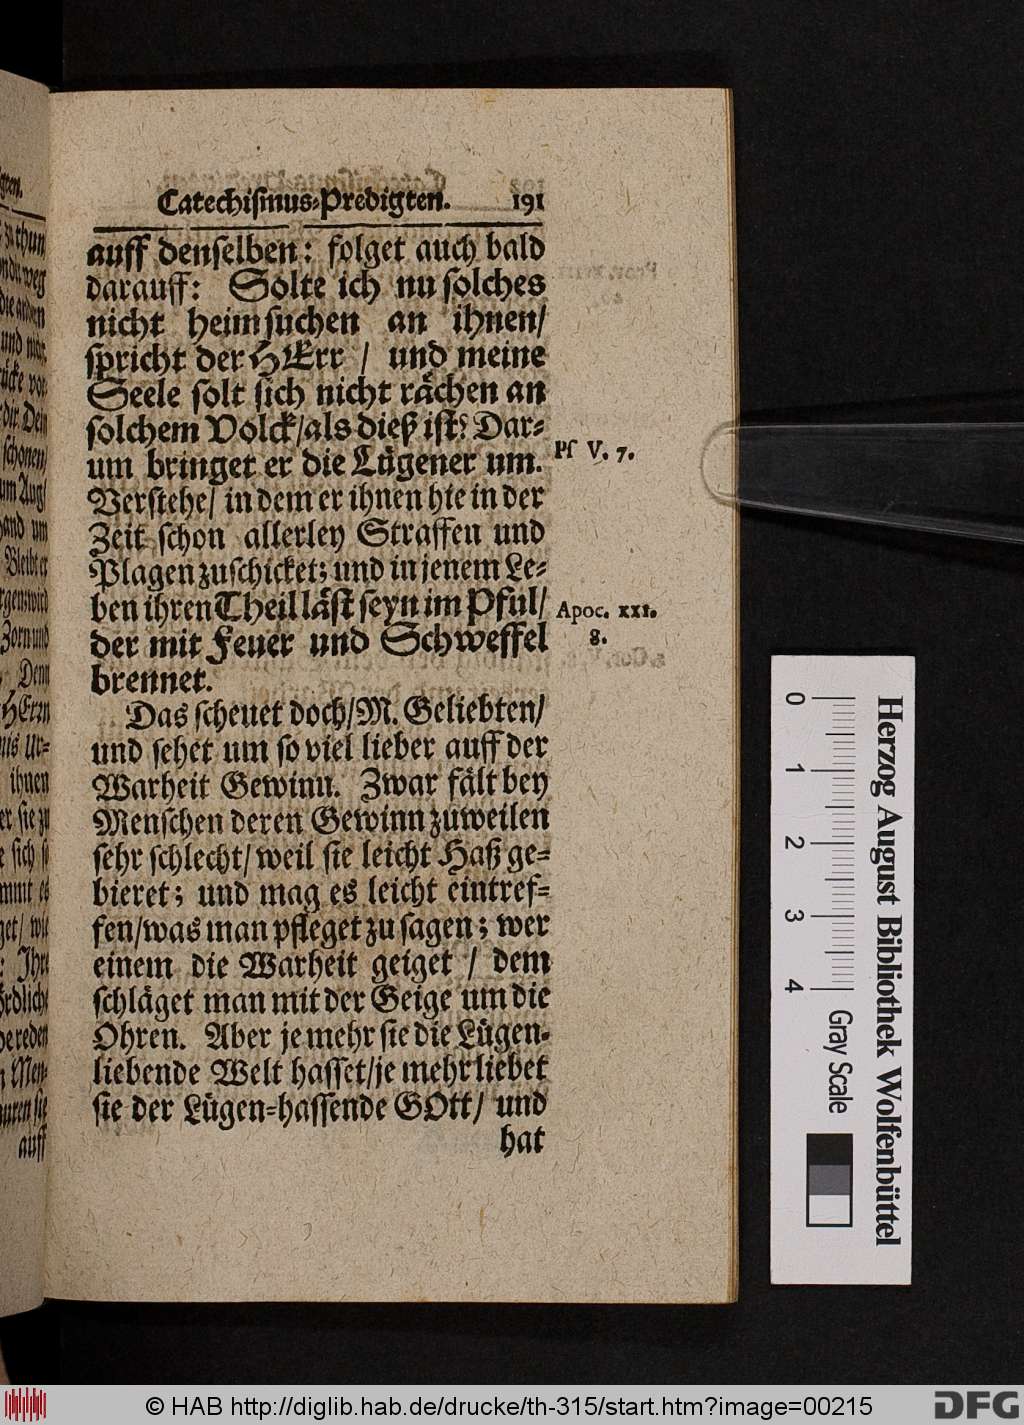 Catechiſmus-Predigten. 191
auff denſelben: folget auch bald
darauff: Solte ich nu ſolches
nicht heimſuchen an ihnen/
ſpricht der HErr / und meine
Seele ſolt ſich nicht rächen an
ſolchem Volck/als dieß iſt? Dar-
um bringet er die Lügener um.
Pſ V. 7.
Verſtehe/ in dem er ihnen hie in der
Zeit ſchon allerley Straffen und
Plagen zuſchicket; und in jenem Le-
ben ihren Theil läſt ſeyn im Pful/
Apoc. xxi.
8.
der mit Feuer und Schweffel
brennet.
Das ſcheuet doch/M. Geliebten/
und ſehet um ſo viel lieber auff der
Warheit Gewinn. Zwar fält bey
Menſchen deren Gewinn zuweilen
ſehr ſchlecht/ weil ſie leicht Haß ge-
bieret; und mag es leicht eintref-
fen/was man pfleget zu ſagen; wer
einem die Warheit geiget / dem
ſchläget man mit der Geige um die
Ohren. Aber je mehr ſie die Lügen-
liebende Welt haſſet/je mehr liebet
ſie der Lügen-haſſende GOtt/ und
hat
auff
0 1 2 3 4
Gray Scale
Herzog August Bibliothek Wolfenbüttel
© HAB http://diglib.hab.de/drucke/th-315/start.htm?image=00215
DFG